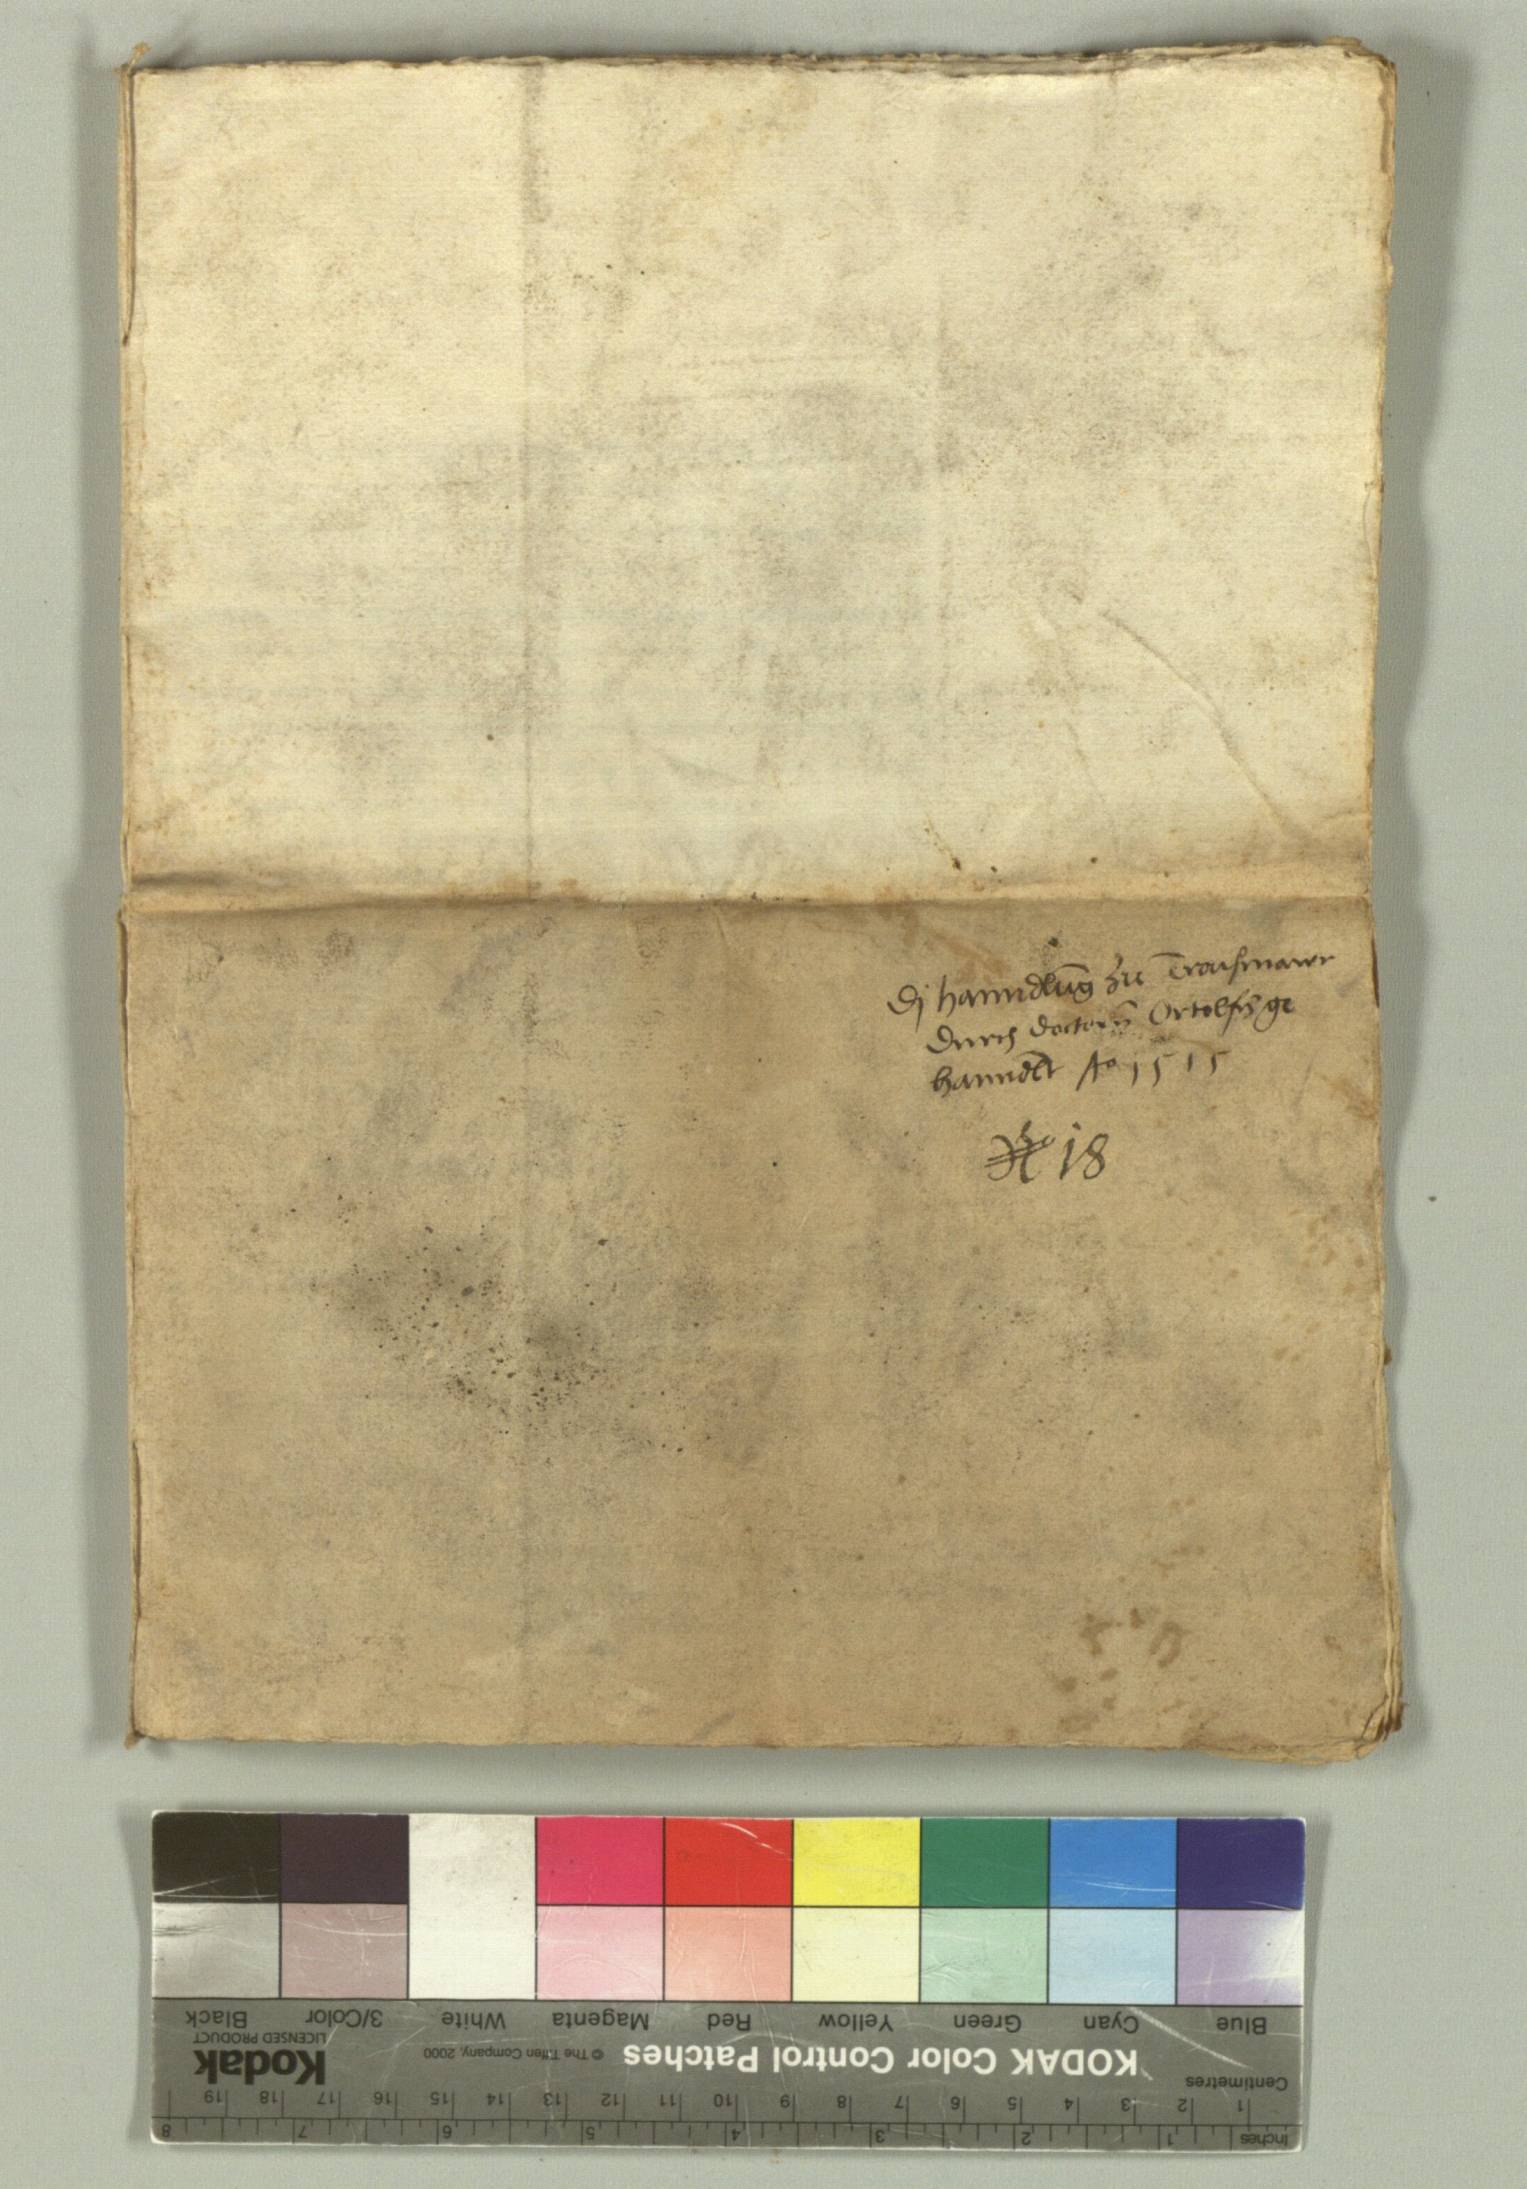 Dj hanndlūg zu Traismawr
durch doctorn Ortolf ge
hanndlt Ao 1515
No 18
Black 3/Color White Magenta Red Yellow Green Cyan Blue
Kodak
LICENSED PRODUCT
© The Tiffen Company, 2000
KODAK Color Control Patches
Centimetres
1 2 3 4 5 6 7 8 9 10 11 12 13 14 15 16 17 18 19
Inches 1 2 3 4 5 6 7 8